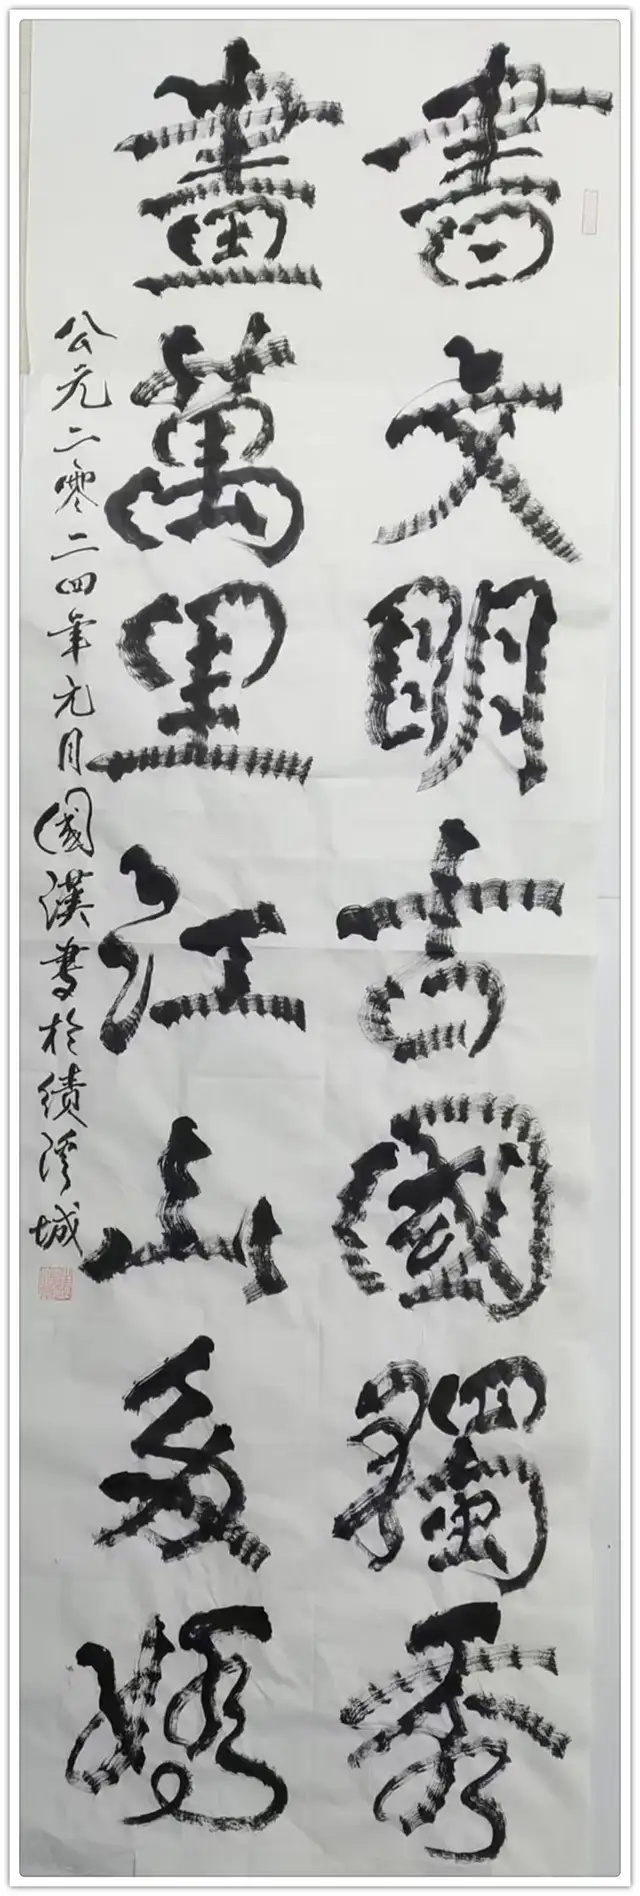 書文明古國獨秀
畫萬里江山多嬌
公元二零二四年元月國漢書於績溪城